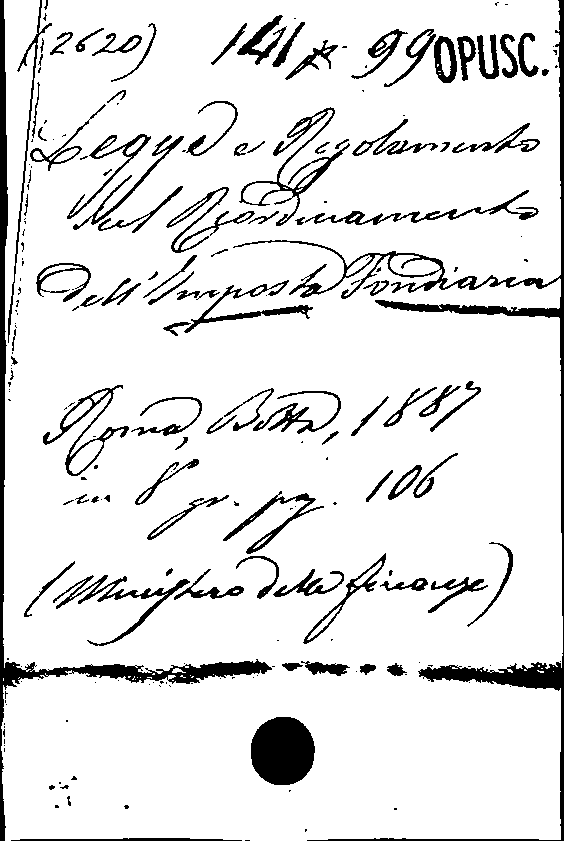 (2620) 141 99 OPUSC.
Legge e Regolamento
sul Riordinamento
dell'Imposta Fondiaria
Roma, Botta, 1887
in 8° gr. pg. 106
(Ministero delle finanze)